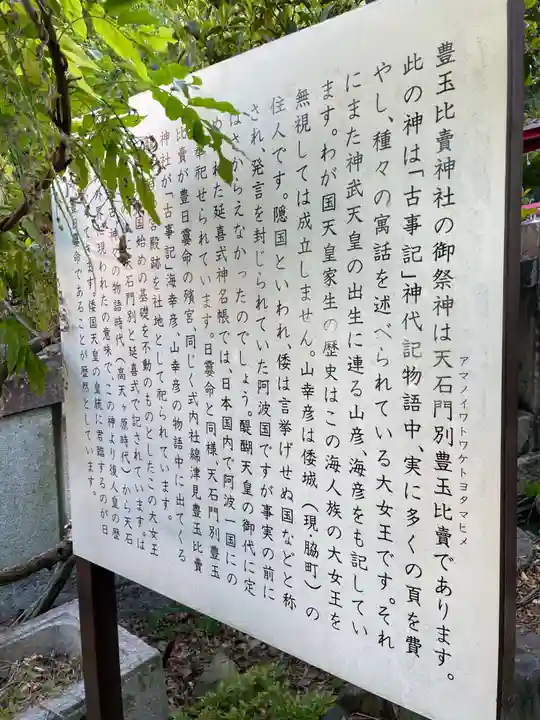 豊玉比賣神社の御祭神は天石門別豊玉比賣であります。
アマノイワトワケトヨタマヒメ
此の神は「古事記」神代記物語中、実に多くの頁を費
やし、種々の寓話を述べられている大女王です。それ
にまた神武天皇の出生に連る山彦、海彦をも記してい
ます。わが国天皇家生の歴史はこの海人族の大女王を
無視しては成立しません。山幸彦は倭城(現・脇町)の
住人です。隠国といわれ、倭は言挙げせぬ国などと称
され、発言を封じられていた阿波国ですが事実の前に
はさからえなかったのでしょう。醍醐天皇の御代に定
められた延喜式神名帳では、日本国内で阿波一国にの
奉祀せられています。日霎命と同様、天石門別豊玉
比賣が豊日霎命の殯宮、同じく式内社綿津見豊玉比賣
神社が、「古事記」海幸彦、山幸彦の物語中に出てくる
宮殿跡を社地として祀られています。
国始めの基礎を不動のものとしたこの大女王
天石門別と延喜式で記されています。は
の物語時代(高天ヶ原時代)から天石
て現われたの意味で、この神より後人皇の歴
ります。倭国天皇の皇統に君臨するのが日
霎命であることが歴然としています。